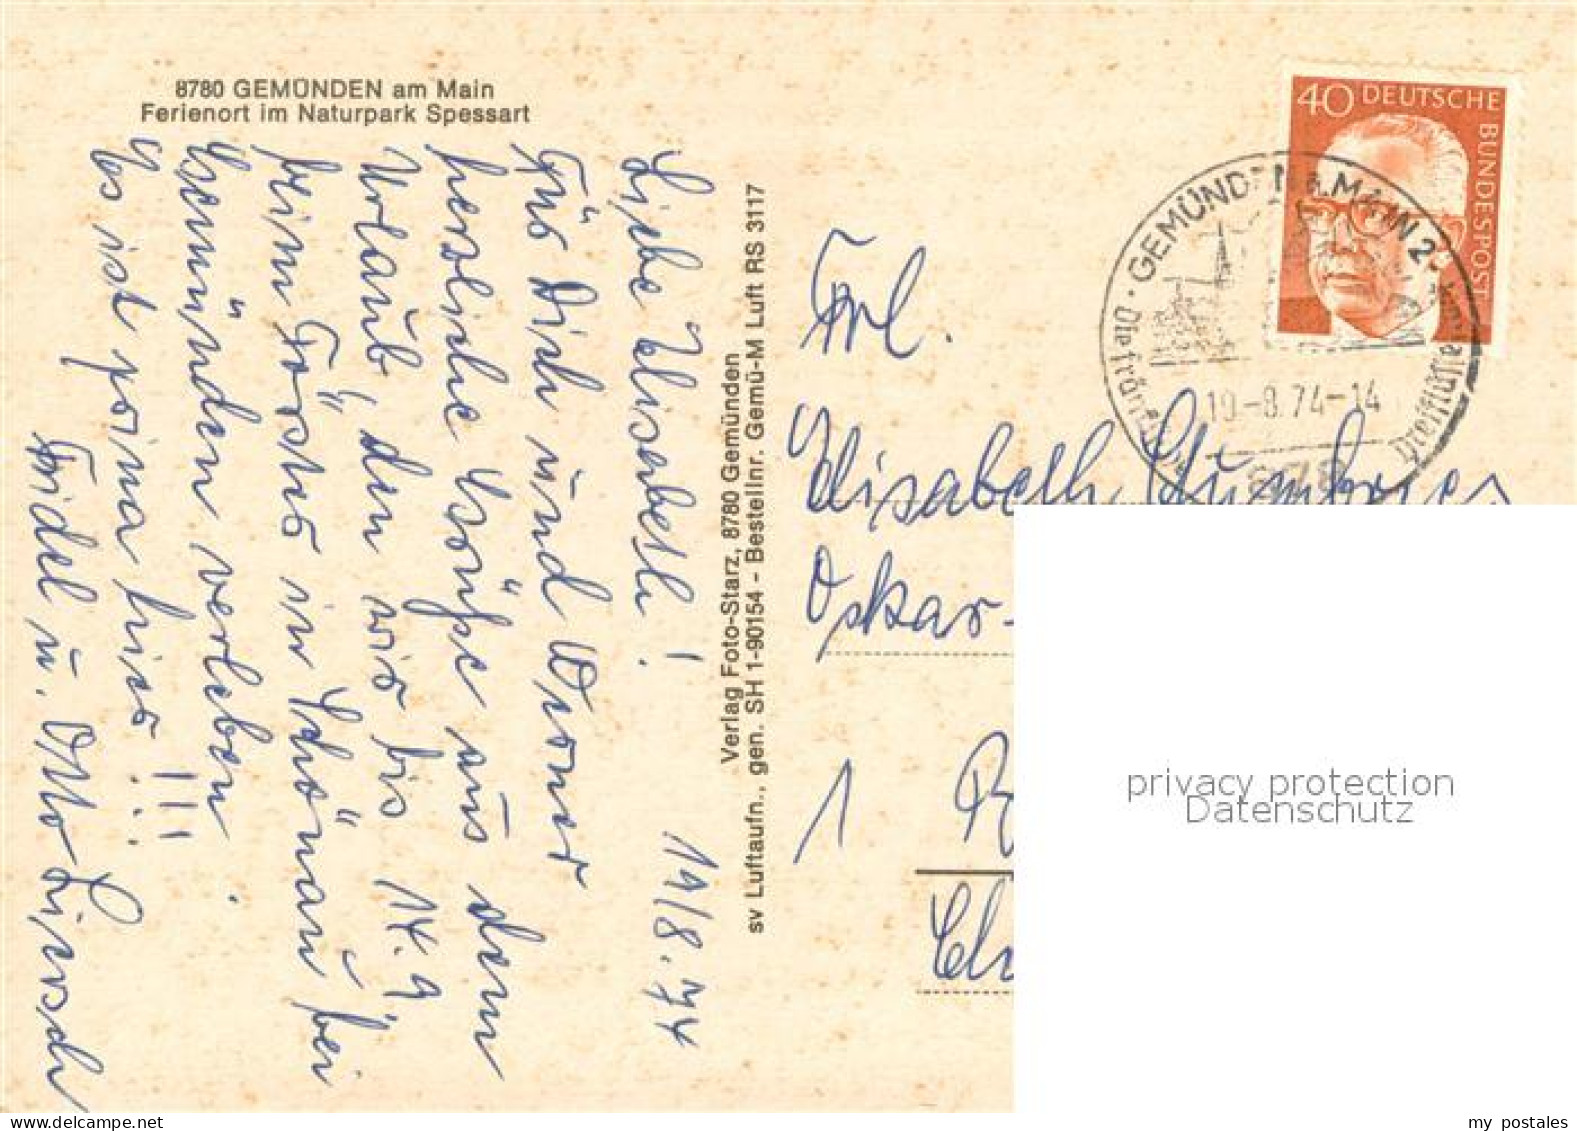 8780 GEMÜNDEN am Main
Ferienort im Naturpark Spessart
Liebe Elisabeth! 19/8.74
Für Dich und Werner
herzliche Grüße aus dem
Urlaub, den wir bis 14.9
beim Förster in Schönau bei
Gemünden verleben.
Es ist prima hier!!!
Fridel u. Otto
Verlag Foto-Starz, 8780 Gemünden
sv Luftaufn., gen. SH 1-90154 - Bestellnr. Gemü-M Luft RS 3117
40 DEUTSCHE BUNDESPOST
GEMÜNDEN a. MAIN 2
19.-8.74-14
8780
Frl.
Elisabeth
Oskar-
1
privacy protection
Datenschutz
www.delcampe.net
my_postales